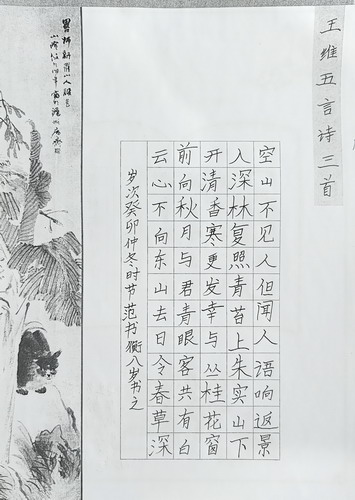 王维五言诗三首
空山不见人但闻人语响返景
入深林复照青苔上朱实山下
开清香寒更发幸与丛桂花窗
前向秋月与君青眼客共有白
云心不向东山去日令春草深
岁次癸卯仲冬时节范书衡八岁书之